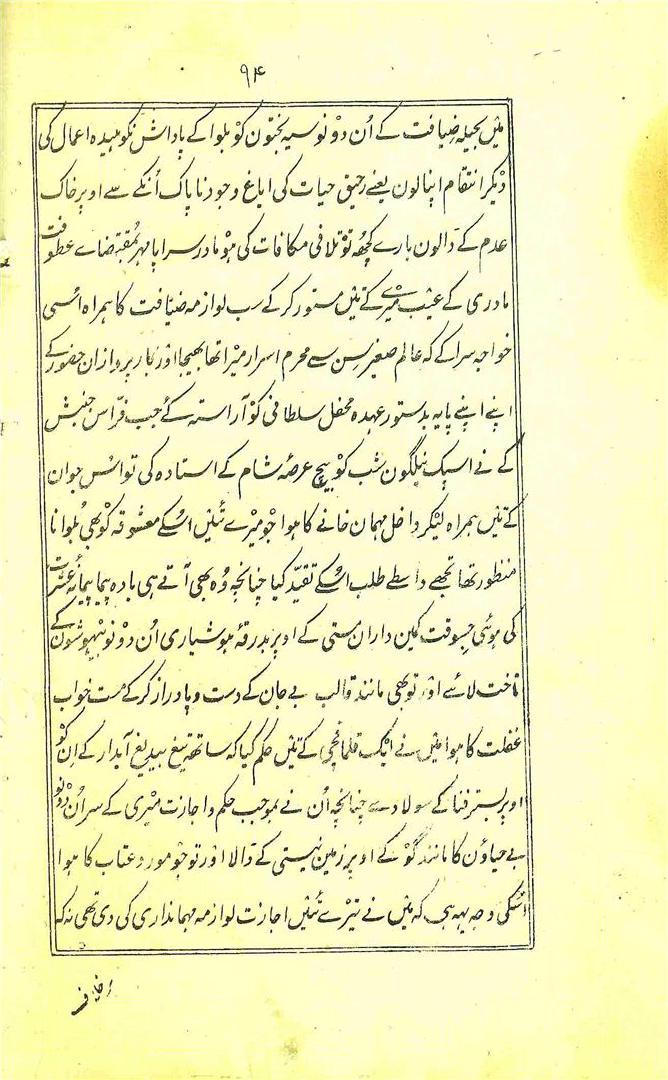 ۹۴
میں بحیلہ ضیافت کے اُن دونو سیہ بختون کو بلوا کے پاداش نکوہیدہ اعمال کی
دیکر انتقام اپنا لون یعنے رحیق حیات کی ایاغ وجود ناپاک اُنکے سے اوپر خاک
عدم کے ڈالون بارے کچھہ تو تلافی مکافات کی ہو مادر سراپا مہر بمقتضاے عطوفت
مادری کے عیب میرے کے تئیں مستور کر کے سب لوازمہ ضیافت کا ہمراہ اسی
خواجہ سرا کے کہ عالم صغیر سن سے محرم اسرار میرا تھا بھیجا اور کارپردازان حضور کے
اپنے اپنے پایہ بدستور عہدہ محفل سلطانی کو آراستہ کئے جب فرّاس جنبش
کے نے اسپک نیلگون شب کو بیچ عرصہ شام کے استادہ کی تو اُس جوان
کے تئیں ہمراہ لیکر داخل مہمان خانے کا ہوا جو میرے تئیں اُسکے معشوقہ کو بھی بُلوانا
منظور تھا تجھے واسطے طلب اُسکے تقیّد کیا چنانچہ وُہ بھی آتے ہی بادہ پیما پیمانہ عشرت
کی ہوئی جسوقت کمین داران مستی کے اوپر بدرقہ ہوشیاری اُن دونو بیہوشون کے
تاخت لائے اور تو بھی مانند قالب بے جان کے دست و پا دراز کر کے مست خواب
غفلت کا ہوا میں نے ایک قلماقچی کے تئیں حکم کیا کہ ساتھ تیغ بیدریغ آبدار کے ان کو
اوپر بستر فنا کے سولا دے چنانچہ اُن نے بموجب حکم و اجازت میری کے سر اُن دونو
بے حیاؤن کا مانند گوے کے اوپر زمین نیستی کے ڈالا اور تو جو مورد عتاب کا ہوا
اسکی وجہ یہہ ہی کہ میں نے تیرے تئیں اجازت لوازمہ مہمانداری کی دی تھی نہ کہ